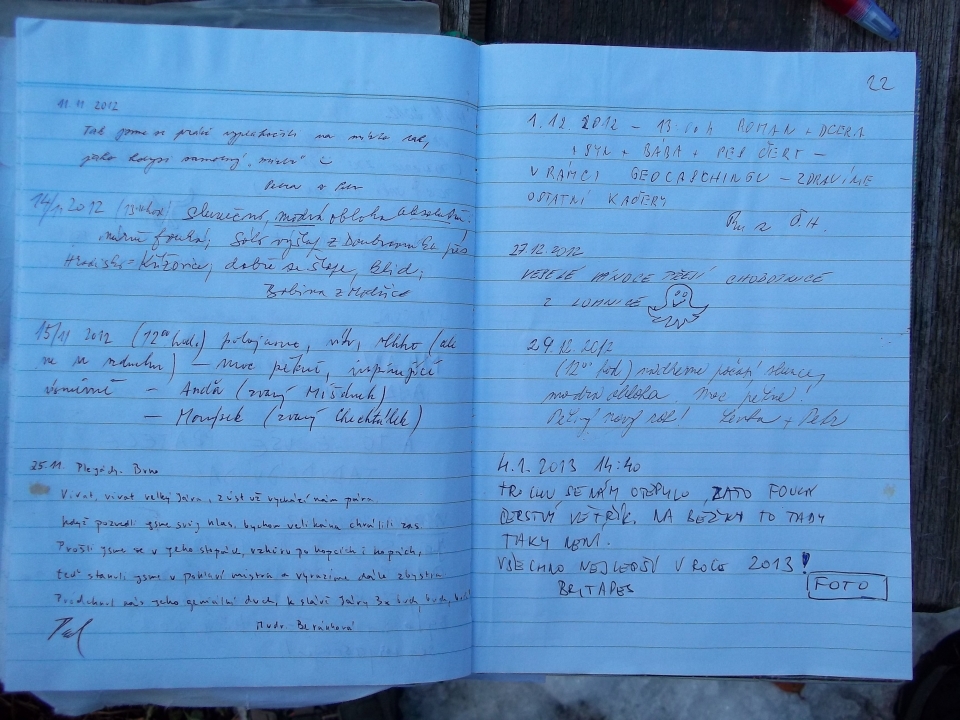 11.11 2012
Tak jsme se právě vyplahočili na místo kde,
jako kdysi samotný mistr
Petra + Petr
14/11 2012 slunečno, modrá obloha absolutn.
mírně fouká, sólo výšlap z Doubravníka přes
Hradisko - Křížovice, dobře se šlape, klid,
Bobina z Modřic
15/11 2012 (12⁰⁰ hod.) polojasno, vlhko (ale
ne v vzduchu) — moc pěkné, inspirující
vesmírné — Anďa (zvaný Mišduch)
— (zvaný Chechtálek)
25.11. Brno
Vivat, vivat velký Jára, z úst už vychází nám pára
když pozvedli jsme svůj hlas, bychom velikána chválili zas.
Prošli jsme se v jeho stopách, vzhůru po kopcích i kopách,
teď stanuli jsme v pohlaví mistra a vyrazíme dále zbystra
Pozdchnul nás jeho geniální duch, k slávě Járy 3x buch, buch, buch
Mudr. Beránková
22
1.12. 2012 — 13:00 h ROMAN + DCERA
+ SYN + BÁBA + PES ČERT —
V RÁMCI GEOCASCHINGU — ZDRAVÍME
OSTATNÍ KAČERY
27.12.2012
VESELÉ VÁNOCE CHOBOTNICE
Z LOMNICE
29.12. 2012
(12⁰⁰ hod) nádherné počasí slunce,
modrá obloha. Moc pěkné!
Pěkný nový rok! Lenka + Petr
4.1. 2013 14:40
TROCHU SE NÁM OTEPLILO, ZATO FOUKÁ
ČERSTVÝ VĚTŘÍK. NA BĚŽKY TO TADY
TAKY NENÍ.
VŠECHNO NEJLEPŠÍ V ROCE 2013!
BRITAPES
FOTO